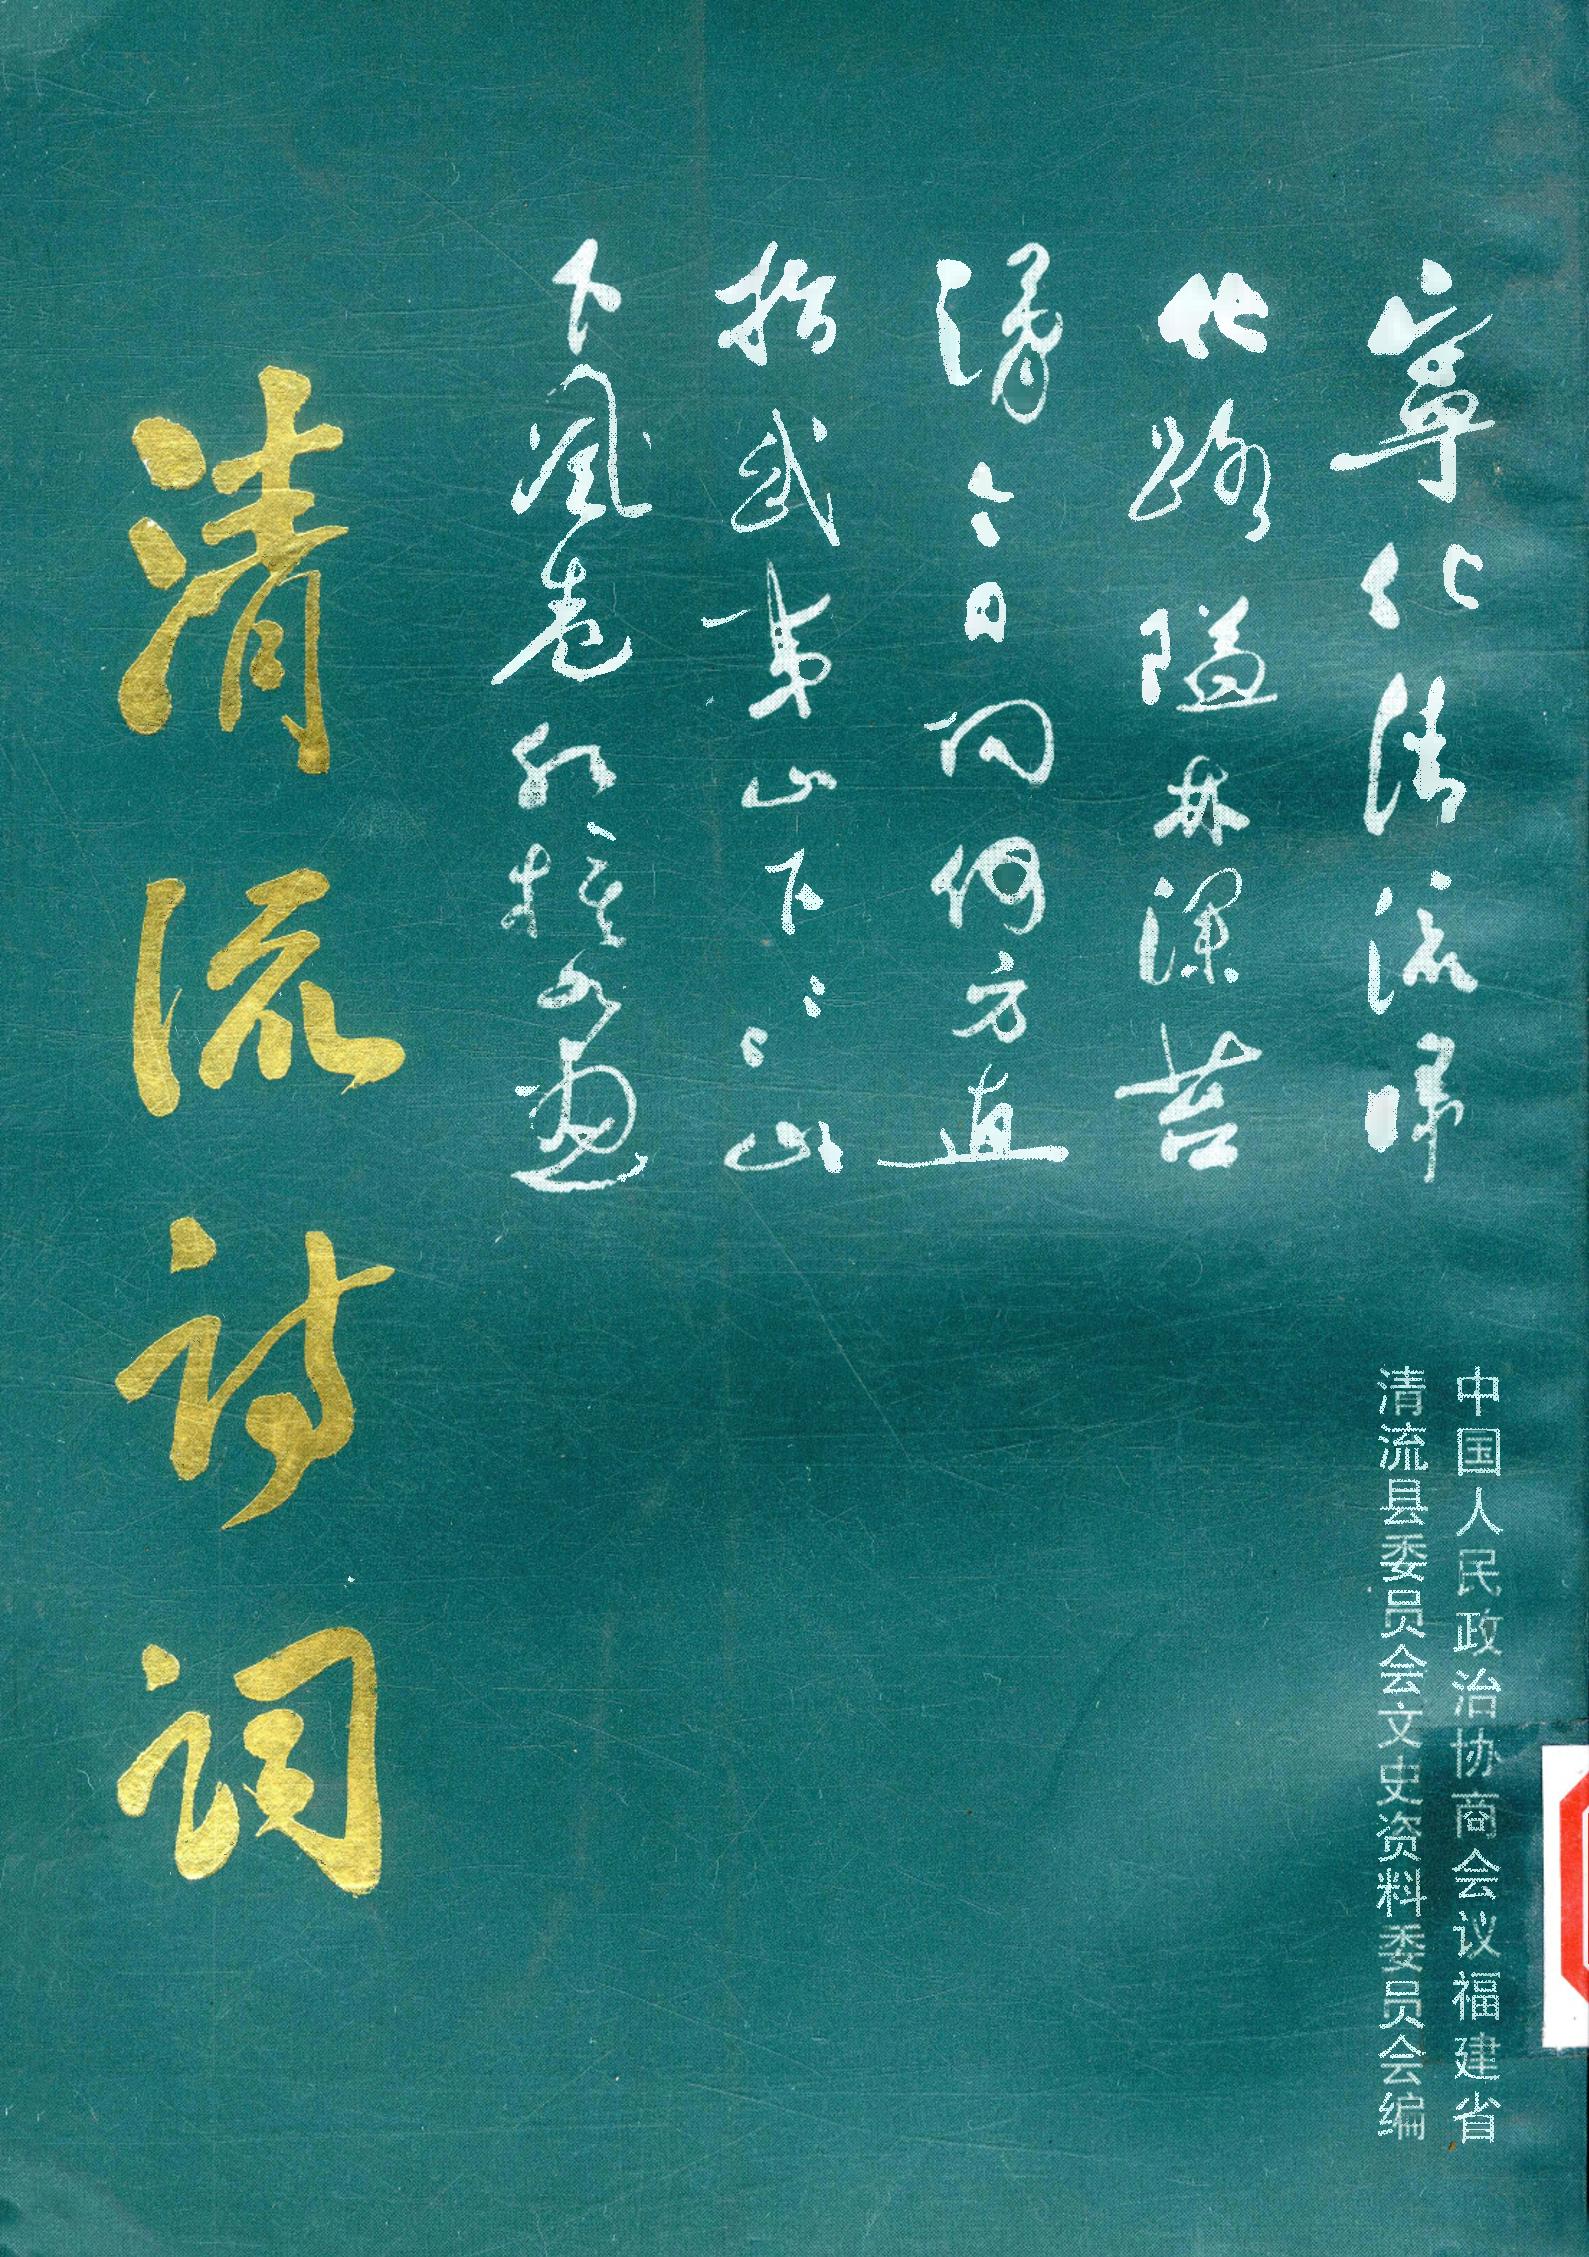 寧化清流歸
化路隘林深苔
滑今日向何方直
指武夷山下〻〻山
下風卷红旗如画
清流诗词
中国人民政治协商会议福建省
清流县委员会文史资料委员会编